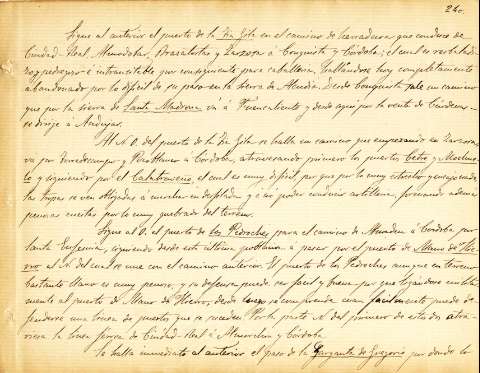 24c.
Sigue al anterior el puerto de la en el camino de herradura que conduce de
Ciudad-Real, Almodobar, Brazatortas y á Conquista y Córdoba; el cual es
y pedregoso é intransitable por consiguiente para caballeria, hallandose hoy completamente
abandonado por lo dificil de su paso en la Sierra de Alcudia. Desde Conquista sale un camino
que por la sierra de Santa Madrona vá á Fuencaliente y desde aqui por la venta de
se dirije á Andujar.
Al N.O. del puerto de la se halla un camino que empezando en
va por y á Cordoba, atravesando primero los puertos y
y siguiendo por el Calatraveño; el cual es muy dificil, por que por lo muy estrecho y encajonado
las tropas se ven obligadas á marchar en desfilada y á no poder conducir artilleria, formando ademas
penosas cuestas por lo muy quebrado del terreno.
Sigue al O. el puerto de los Pedroches para el camino de Almaden á Córdoba por
Santa Eufemia, siguiendo desde este ultimo á pasar por el puerto de
al N. del cual se une con el camino anterior. El puerto de los Pedroches aunque en terreno
bastante llano es muy penoso, y su defensa puede ser facil y buena por que
al puerto de desde luego se comprende cuan facilmente puede de-
fenderse una linea de puertos que se suceden Por la parte N. del primero de estos atra-
viesa la linea ferrea de Ciudad-Real á Almorchon y Cordoba.
Se halla inmediato al anterior el paso de la Garganta de Gregorio por donde lo